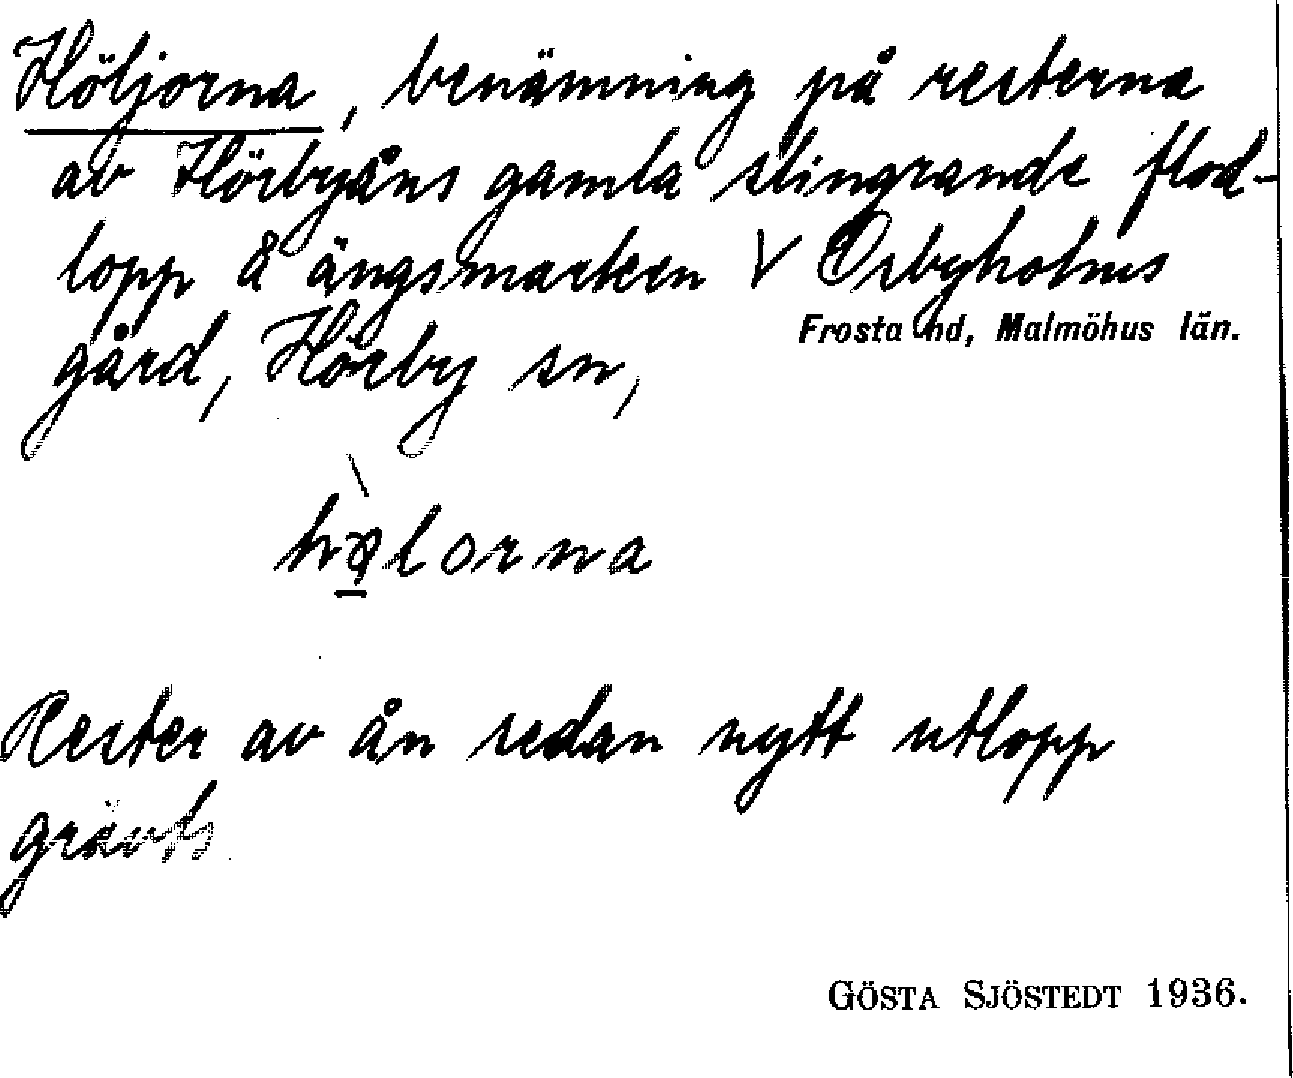 Höljorna, benämning på resterna
av Hörbyåns gamla slingrande flod-
lopp å ängsmarken V Osbyholms
gård, Hörby sn,
Frosta hd, Malmöhus län.
Rester av ån sedan nytt utlopp
grävts.
GÖSTA SJÖSTEDT 1936.